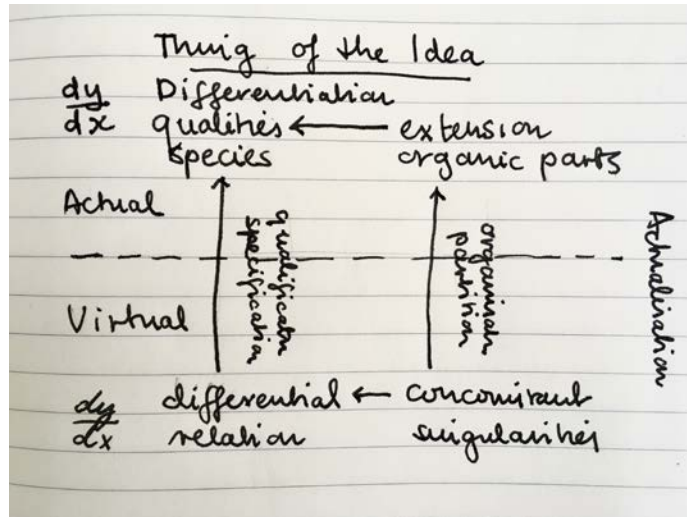 Thing of the Idea
dy Differentiation
dx qualities ← extension
species organic parts
Actual
qualification
specification
organisation
partition
Actualisation
Virtual
dy differential ← concomitant
dx relation singularities